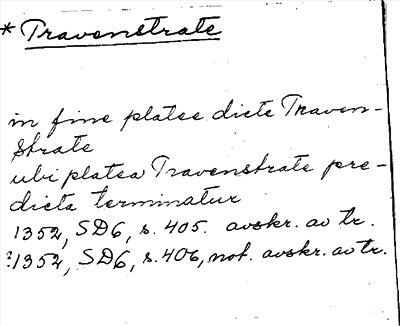 * Travenstrate
in fine platee dicte Traven-
Strate
ubi platea Travenstrate pre-
dicta terminatur
1352, SD6, s. 405. avskr. av tr.
?1352, SD6, s. 406, not. avskr. av tr.